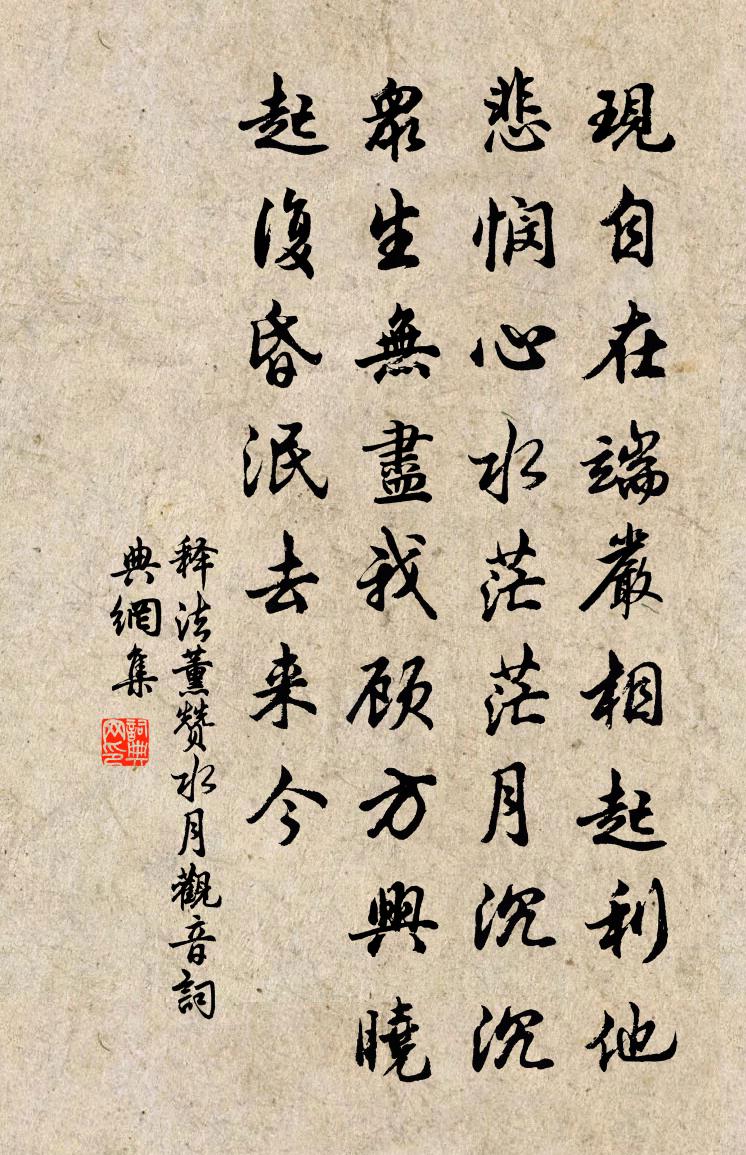 現自在端嚴相起利他
悲悯心水茫茫月沉沉
眾生無盡我顾方興曉
起復昏泯去来今
释法薰赞水月觀音詞
典網集
詞典
网印